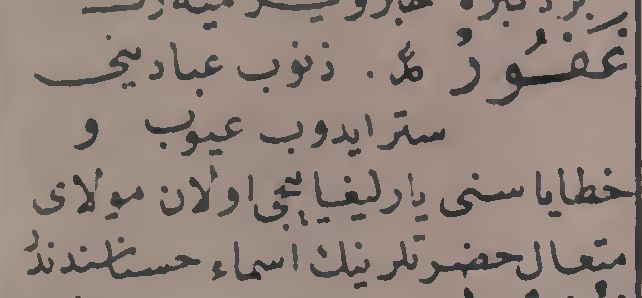 غَفُورُ ذنوب عبادينى
ستر ايدوب عيوب و
خطايا سنى يارليغايجى اولان مولاى
متعال حضرتلرينك اسماء حسناسندندُر